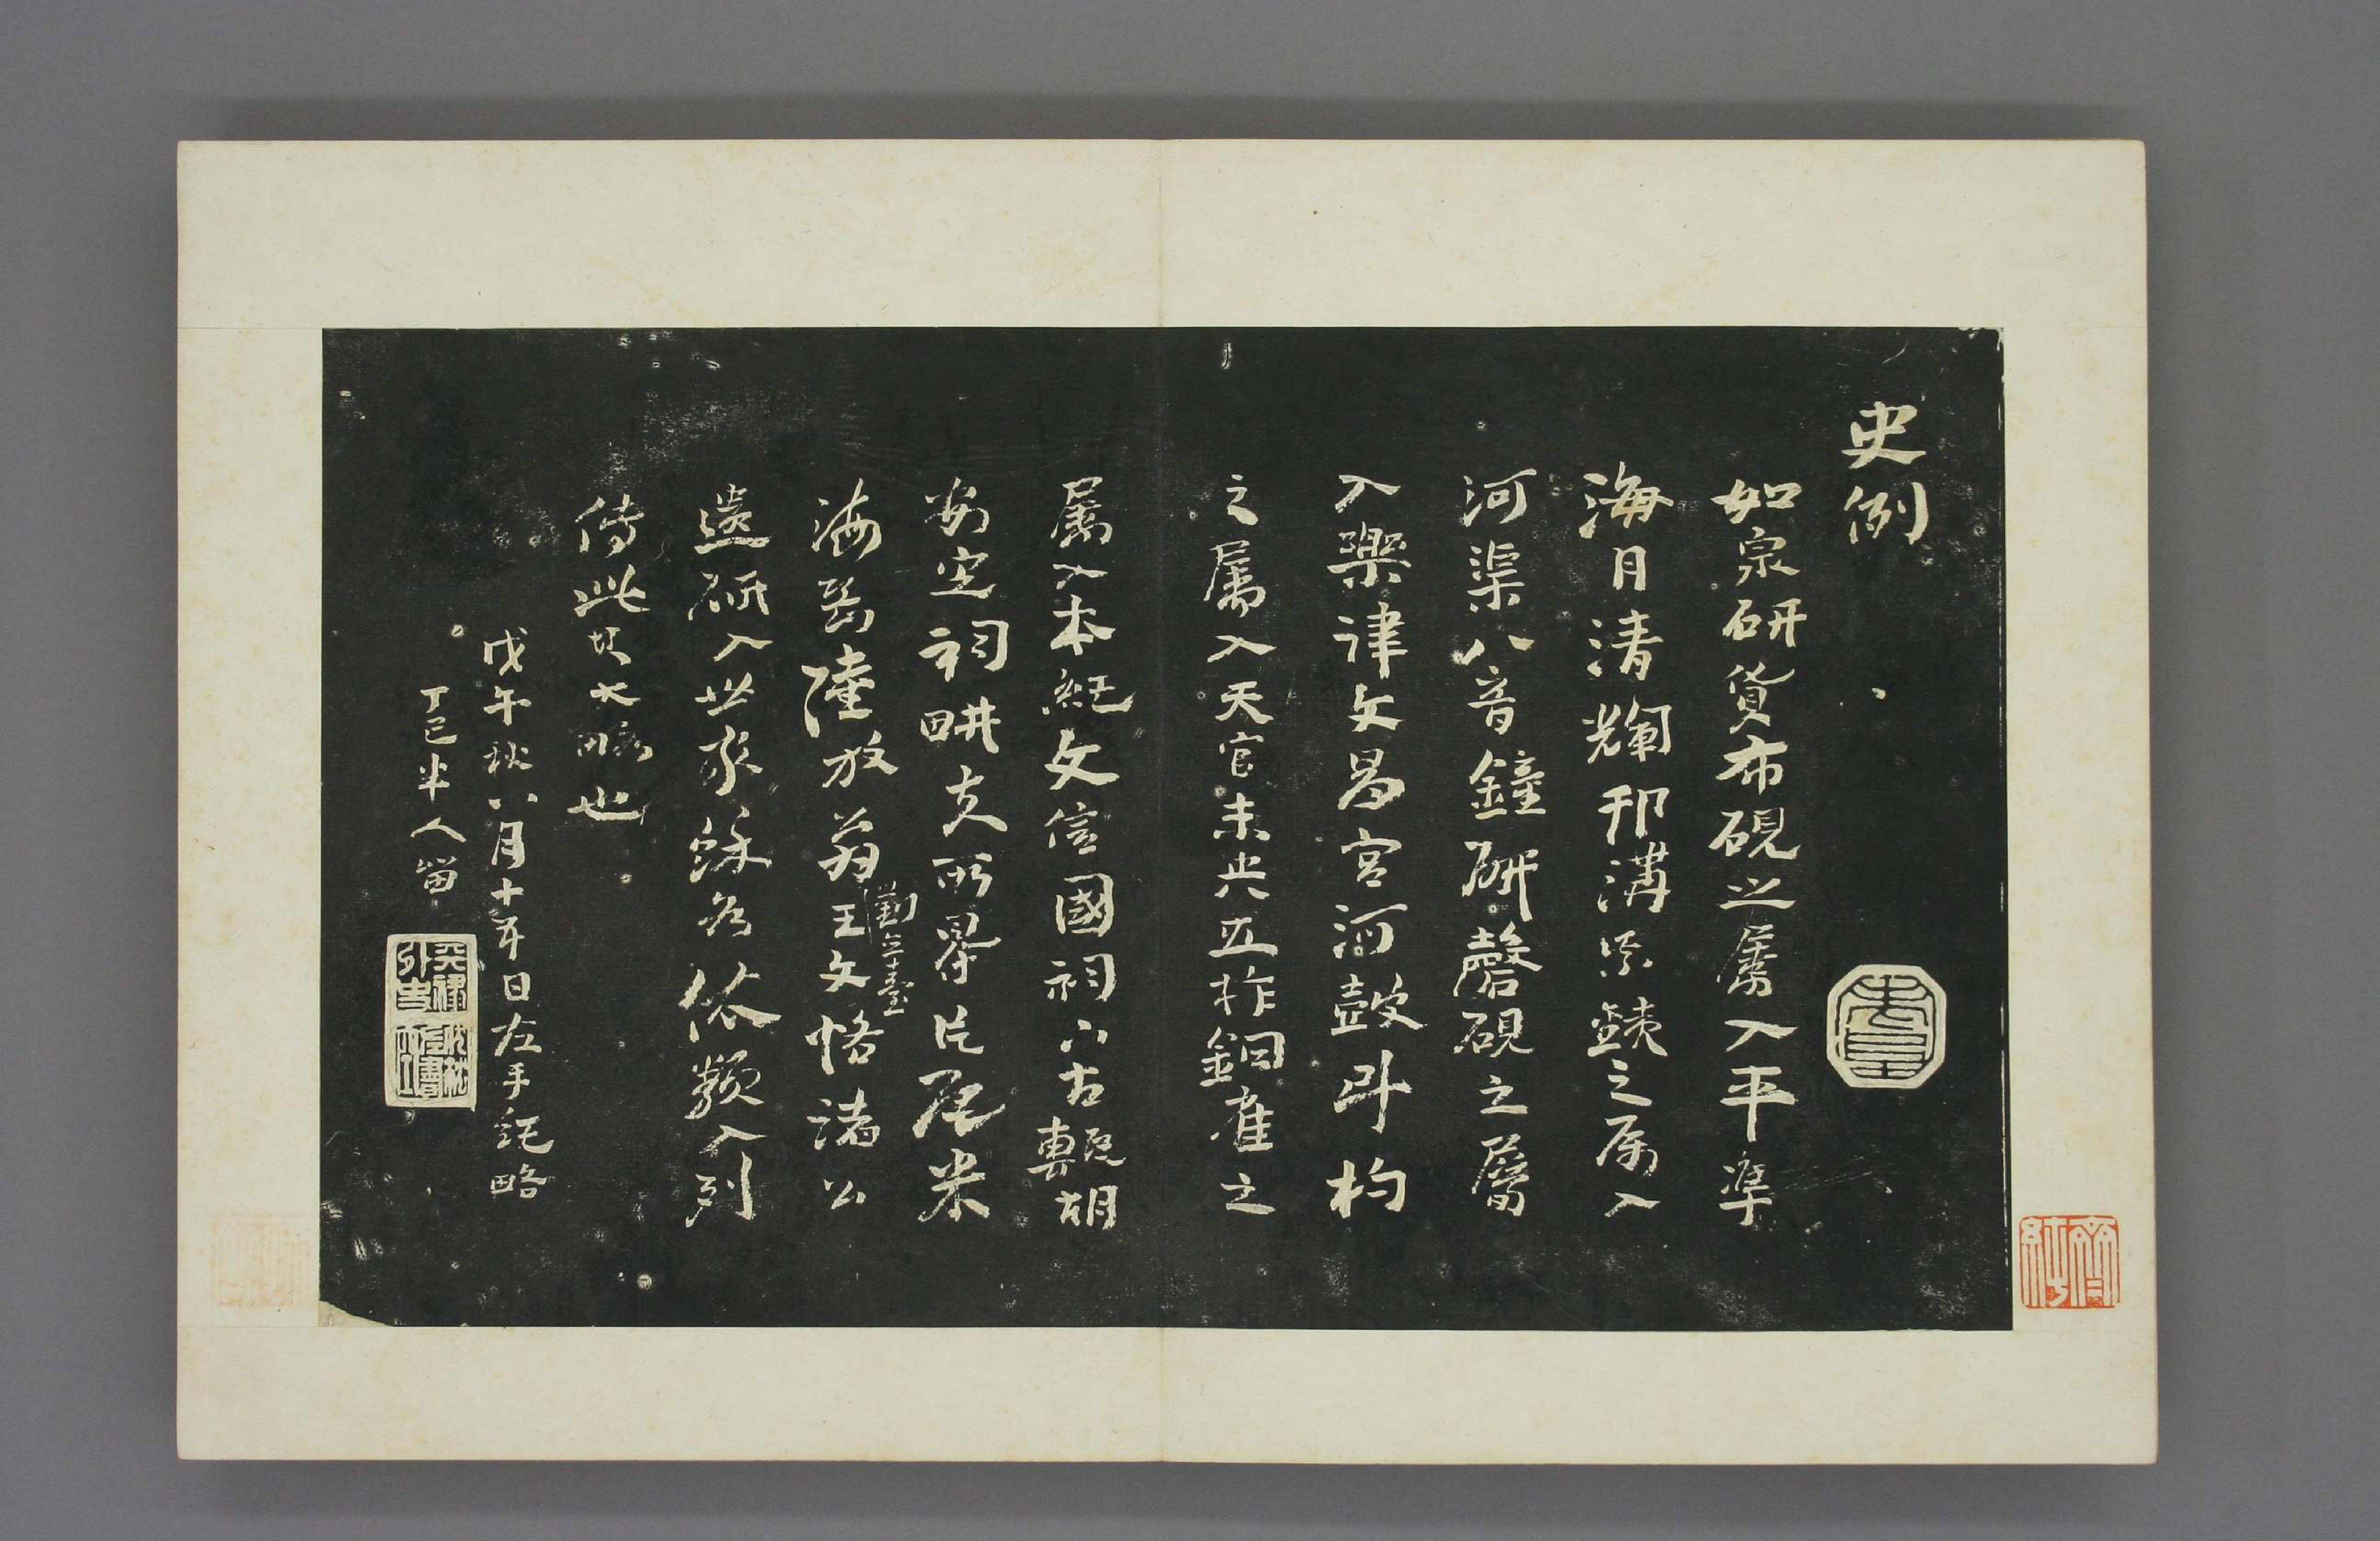 史例
如泉研貨布硯之屬入平準
海月清輝邗溝紫䥫之屬入
河渠八音鐘研磬硯之屬
入樂律文昌宮河鼓斗杓
之屬入天官未央五柞銅雀之
屬入本紀文信國祠下古專瓦胡
安定祠畊夫所舉片瓦米
海岳陸放翁王文恪諸公
劉立臺
遺研入世家餘各依類入列
傳此其大略也
戊午秋八月十有五日左手記略
丁巳半人留